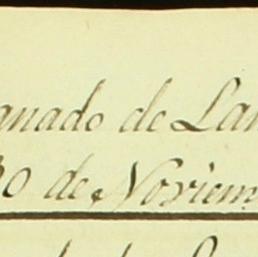 anado de Lan
30 de Noviem